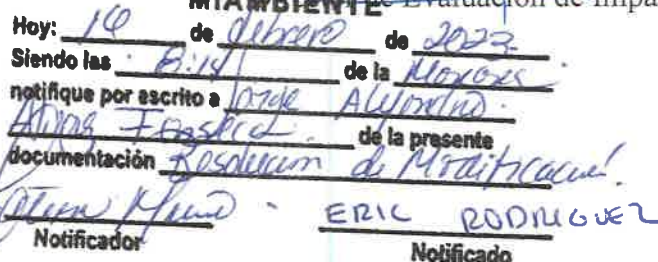 MIAMBIENTE Evaluación de Impa
Hoy: 16 de febrero de 2023
Siendo las 8:14 de la
notifique por escrito a Jorge
de la presente
documentación Resolucion de Modificación.
ERIC RODRIGUEZ
Notificador Notificado